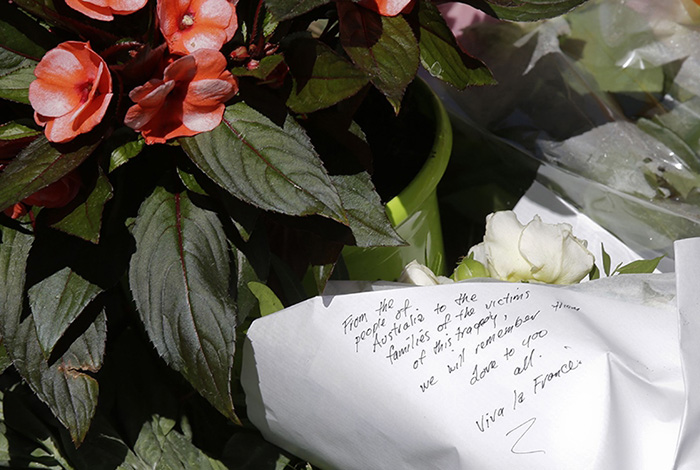 From the
people of
Australia to the
families of the victims
of this tragedy,
we will remember them
Love to you
all.
Viva la France.